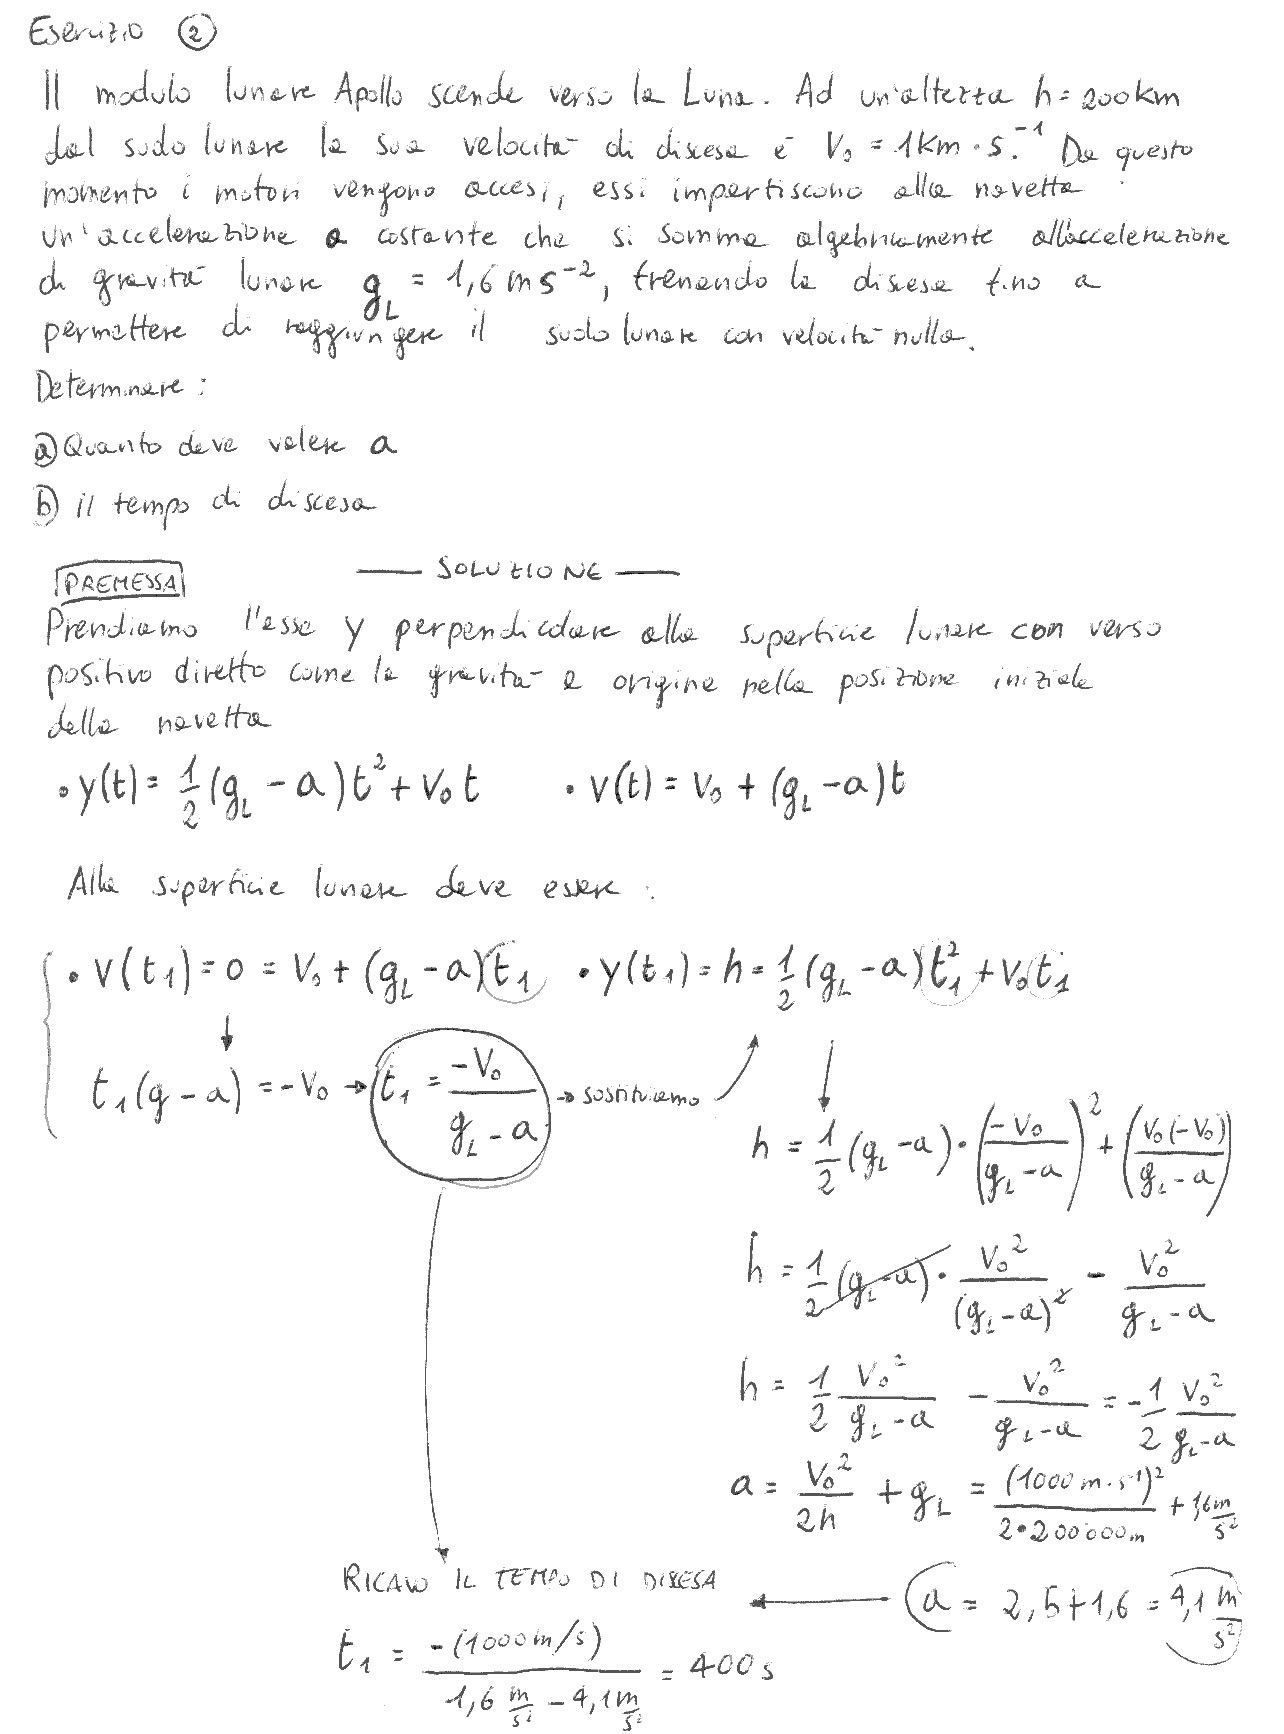 Esercizio ②
Il modulo lunare Apollo scende verso la Luna. Ad un'altezza h = 200km
dal suolo lunare la sua velocità di discesa è V₀ = 1Km · s⁻¹. Da questo
momento i motori vengono accesi, essi impartiscono alla navetta
un'accelerazione a costante che si somma algebricamente all'accelerazione
di gravità lunare g_L = 1,6 m s⁻², frenando la discesa fino a
permettere di raggiungere il suolo lunare con velocità nulla.
Determinare :
ⓐ Quanto deve valere a
ⓑ il tempo di discesa
— SOLUZIONE —
PREMESSA
Prendiamo l'asse y perpendicolare alla superficie lunare con verso
positivo diretto come la gravità e origine nella posizione iniziale
della navetta
• y(t) = 1/2 (g_L - a)t² + V₀ t • v(t) = V₀ + (g_L - a)t
Alla superficie lunare deve essere :
• V(t₁) = 0 = V₀ + (g_L - a)t₁ • y(t₁) = h = 1/2 (g_L - a)t₁² + V₀t₁
t₁(g - a) = -V₀ → t₁ = -V₀/(g_L - a) → sostituiamo
h = 1/2 (g_L - a) · (-V₀/(g_L - a))² + (V₀(-V₀)/(g_L - a))
h = 1/2 (g_L - a) · V₀²/(g_L - a)² - V₀²/(g_L - a)
h = 1/2 V₀²/(g_L - a) - V₀²/(g_L - a) = -1/2 V₀²/(g_L - a)
a = V₀²/2h + g_L = (1000 m · s⁻¹)²/(2 · 200'000m) + 1,6 m/s²
a = 2,5 + 1,6 = 4,1 m/s²
RICAVO IL TEMPO DI DISCESA
t₁ = -(1000 m/s)/(1,6 m/s² - 4,1 m/s²) = 400 s